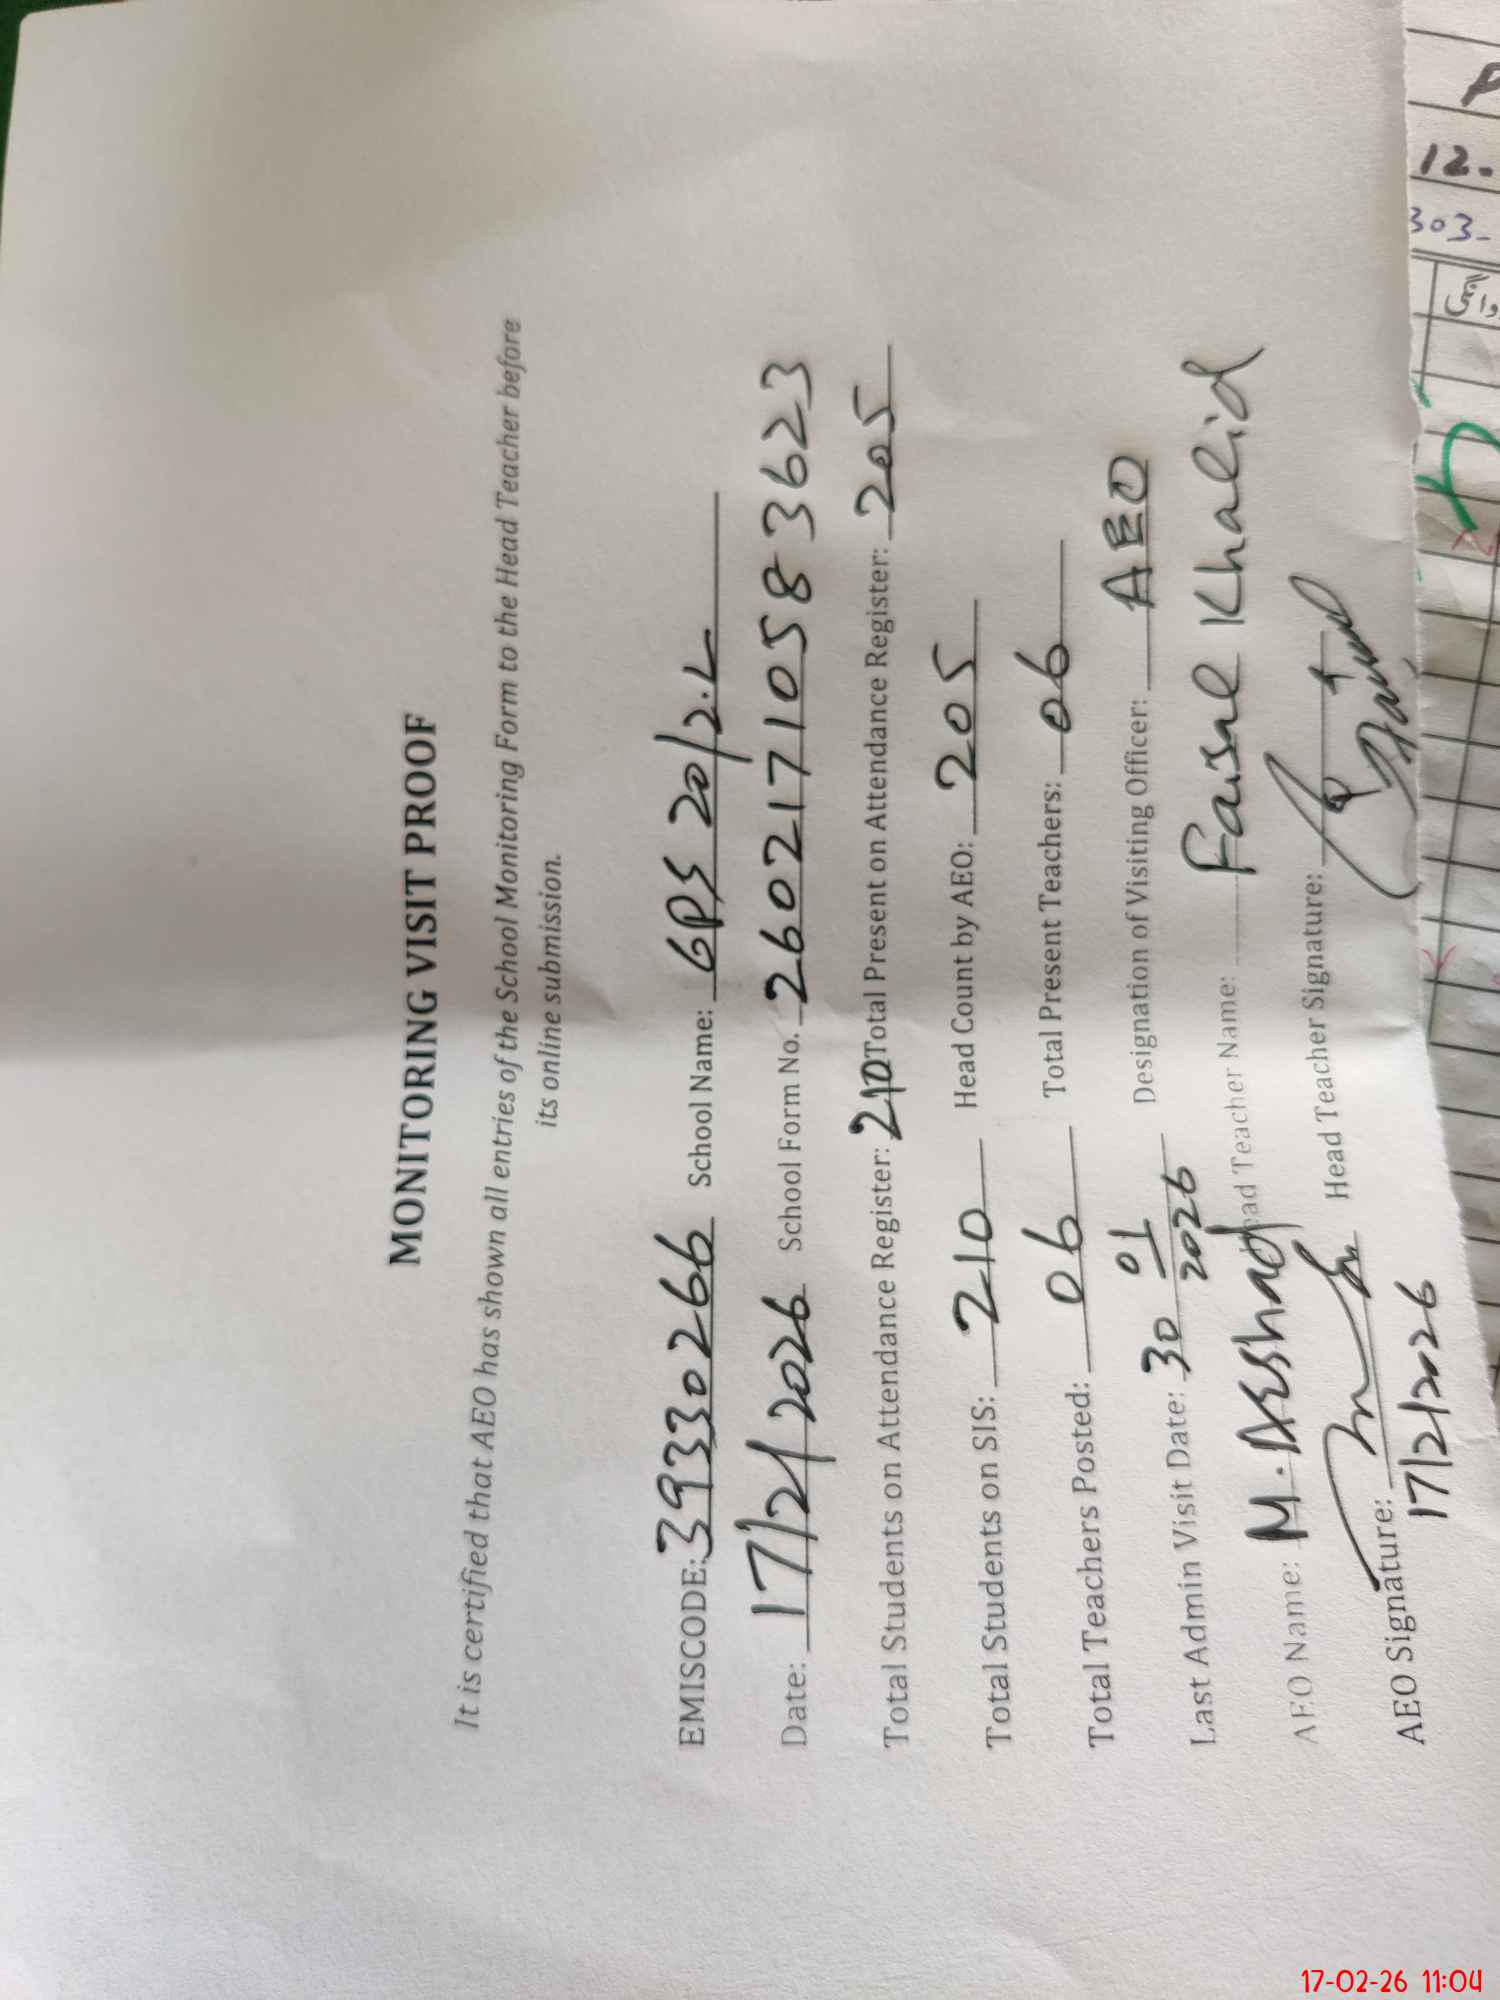 MONITORING VISIT PROOF
It is certified that AEO has shown all entries of the School Monitoring Form to the Head Teacher before
its online submission.
EMISCODE: 39330266 School Name: GPS 20/2.L
Date: 17/2/2026 School Form No. 2602171058 3623
Total Students on Attendance Register: 210 Total Present on Attendance Register: 205
Total Students on SIS: 210 Head Count by AEO: 205
Total Teachers Posted: 06 Total Present Teachers: 06
Last Admin Visit Date: 30 01 2026 Designation of Visiting Officer: AEO
AEO Name: M. Arshad Head Teacher Name: Faisal Khalid
AEO Signature: Head Teacher Signature:
17/2/2026
12.
303-
17-02-26 11:04